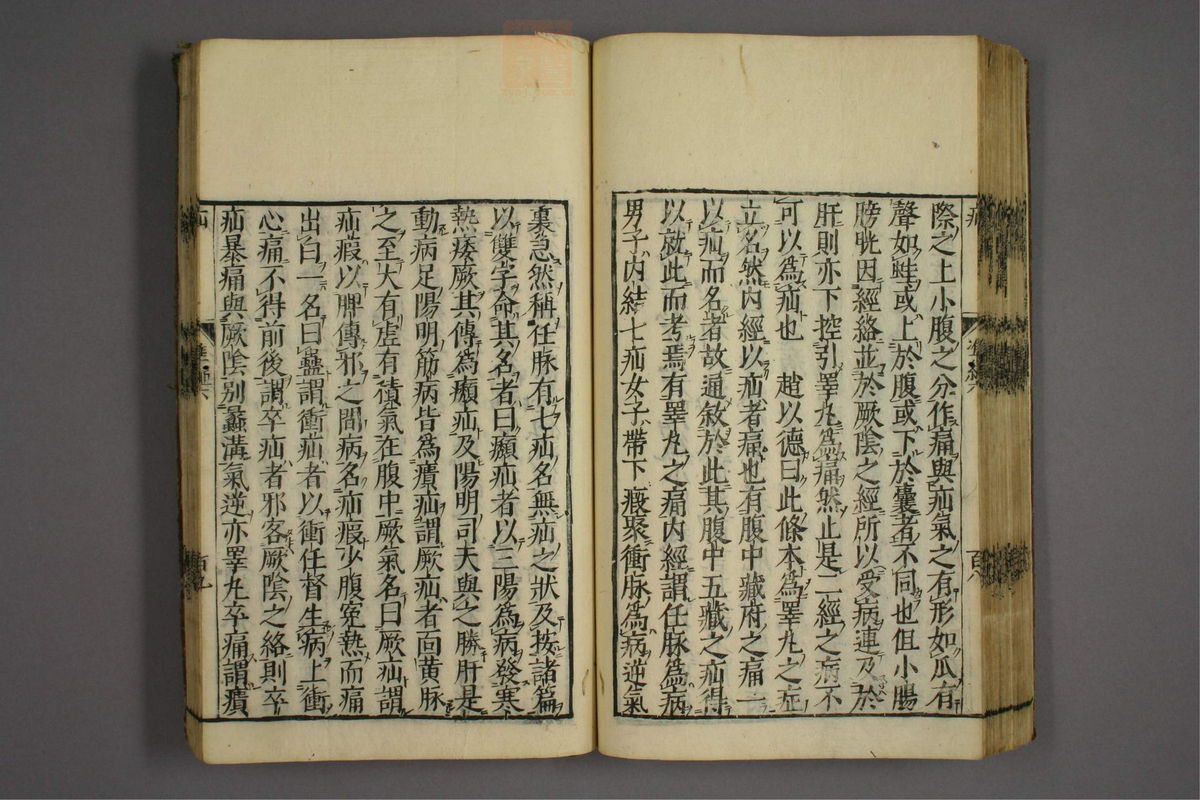 際之上小腹之分作痛與疝氣之有形如瓜有
聲如蛙或上於腹或下於囊者不同也但小腸
膀胱因經絡並於厥陰之經所以受病連及於
肝則亦下控引睪丸為痛然止是二經之病不
可以為疝也 趙以德曰此條本為睪丸之症
立名然内經以疝者痛也有腹中藏府之痛一
以疝而名者故通敘於此其腹中五藏之疝得
以就此而考焉有睪丸之痛内經謂任脉為病
男子内結七疝女子帶下瘕聚衝脉為病逆氣
裏急然稱任脉有七疝名無疝之狀及按諸篇
以雙字命其名者曰㿗疝者以三陽為病發寒
熱痿厥其傳為㿗疝及陽明司天與之勝肝是
動病足陽明筋病皆為㿗疝謂厥疝者面黄脉
之至大有虚有積氣在腹中厥氣名曰厥疝謂
疝瘕以脾傳邪之間病名疝瘕少腹寃熱而痛
出白一名曰蠱謂衝疝者以衝任督生病上衝
心痛不得前後謂卒疝者邪客厥陰之絡則卒
疝暴痛與厥陰别蠡溝氣逆亦睪丸卒痛謂㿉
疝
百八
疝
百九